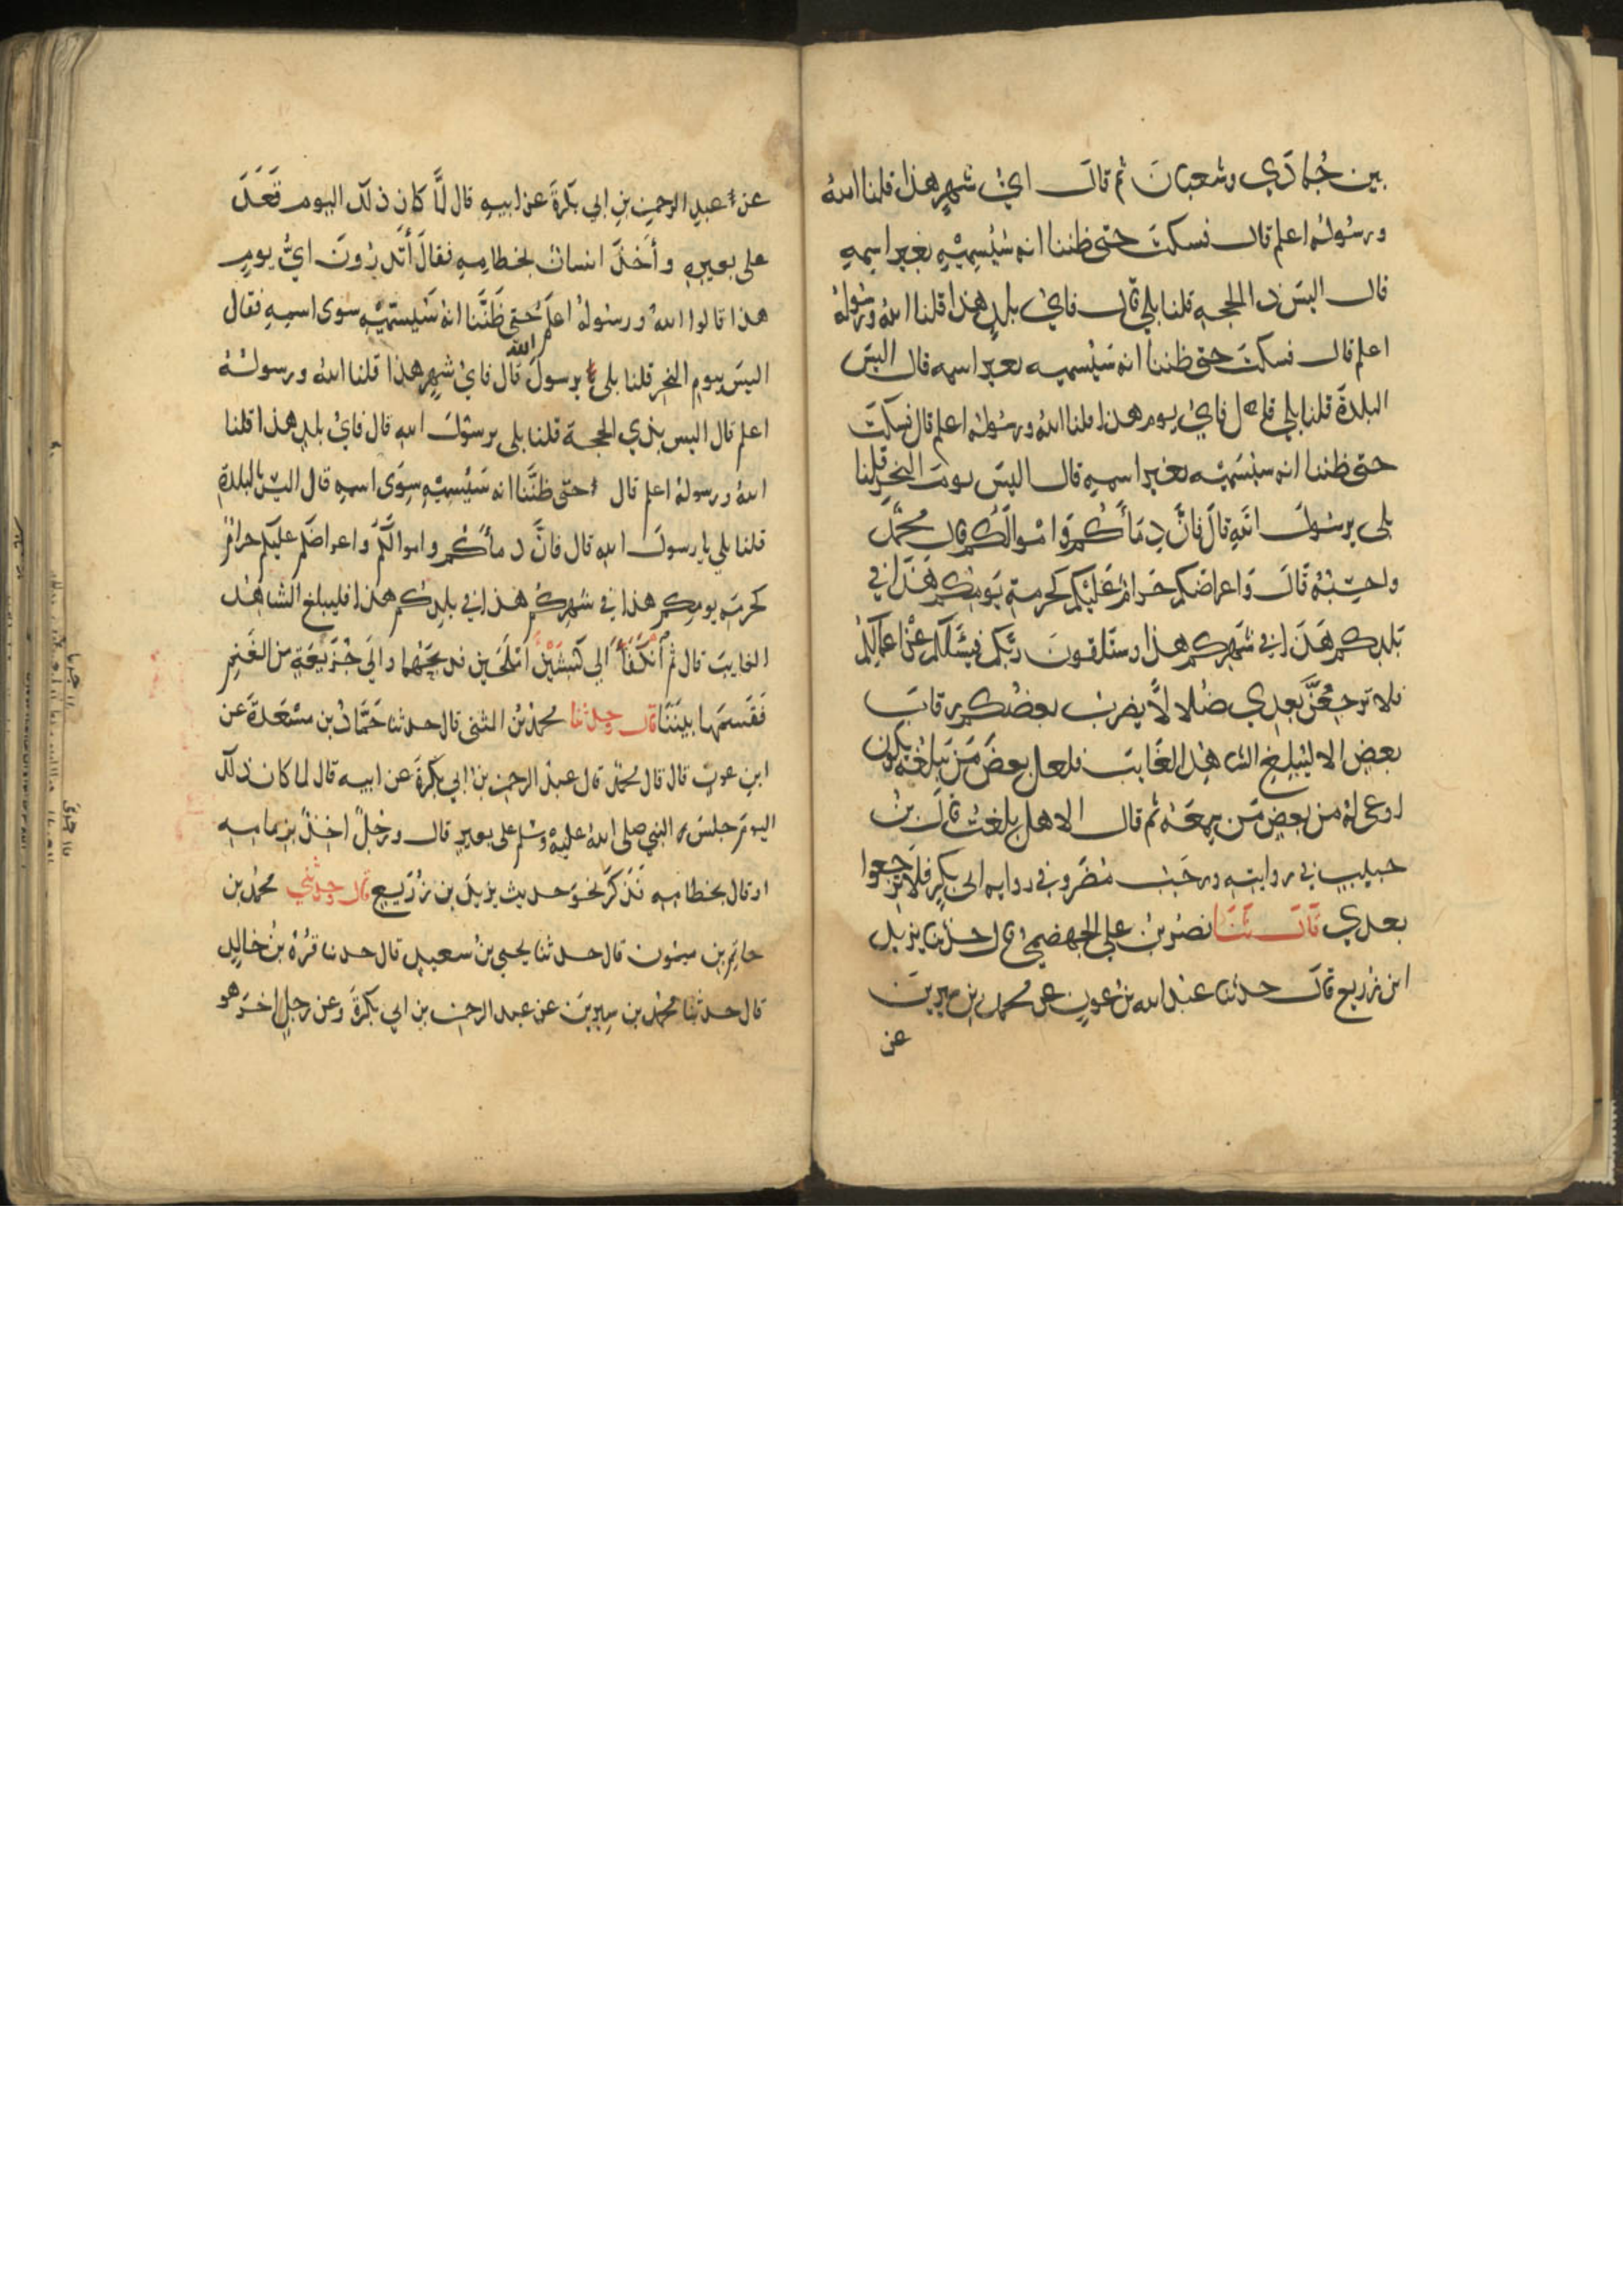 بين جُمادَي وشعبانَ ثم قالَ ايُ شهرٍ هذا قلنا اللهُ
ورسُولهُ اعلم قال فسكتَ حتى ظننا انه سَيُسمِيْهِ بغير اسمِهِ
قال اليسَ ذا الحجهِ قلنا بلي قال فايُ بلدٍ هذا قلنا اللهُ ورسُولهُ
اعلم قال فسكتَ حتى ظننا انه سَيُسميه بغير اسمه قال اليسَ
البلدةَ قلنا بلي قال فايُ يوم هذا قلنا اللهُ ورسُولهُ اعلم قال فسكتَ
حتى ظننا انه سيُسَمِيْه بغير اسمِهِ قال اليسَ يومَ النحرِ قلنا
بلى يرسُولَ اللهِ قالَ فانَّ دِمَأَكُم وَامْوالَكُم قال محمّدٌ
واحسِبُهُ قَالَ وَاعراضَكم حَرامٌ عَلَيْكم كحرمةِ يَومِكم هَذَا في
بَلدِكم هَذَا في شَهرِكم هذا وستلقونَ رَبَّكم فيَسْئَلكم عَنْ اعمالِكُمْ
فلا ترجِعُنَّ بعدِي ضُلالاً يضربُ بعضُكم رقابَ
بعضٍ الا ليُبَلِغِ الشاهِدُ الغَايبَ فلعل بعضَ مَنْ يَبلُغُهُ يكون
اوعى لهُ من بعضِ مَن سمِعَهُ ثم قال الا هل بلغتُ قال بنُ
حبيبٍ في روايتِهِ ورَجَبُ مُضَر وفي روايه ابى بكرٍ فلا ترجعوا
بعدي قَالَ ثَنَا نصرُ بنُ علي الجهضميُ قال حدثنا يزيدُ
ابن زريع قالَ حدثنا عبدُ الله بنُ عونٍ عن محمد بنِ سِيرينَ
عن
عن عبدِ الرحمنِ بنِ ابي بَكرةَ عن ابيهِ قال لمَّا كانَ ذلك اليوم قَعَدَ
على بعيرِهِ وأخَذَ انسانٌ بخطامِهِ فقالَ أتَدرُونَ ايُّ يومٍ
هذا قالوا اللهُ ورسُولهُ اعلم حتى ظَنَّنا انهُ سَيُسَمِيْهِ سوى اسمِهِ فقال
اليسَ بيوم النحرِ قلنا بلى يرسولَ الله قال فايُ شهرٍ هذا قلنا اللهُ ورسولُهُ
اعلم قال اليس بذي الحجةِ قلنا بلى يرسُولَ اللهِ قال فايُ بلدٍ هذا قلنا
اللهُ ورسولهُ اعلم قال حتى ظنَّنا انه سَيُسمِيْهِ سِوَى اسمِهِ قال اليسَ بالبلدةِ
قلنا بلي يا رسولَ اللهِ قال فانَّ دمأَكُم واموالَكُم واعراضَكم عليكم حرامٌ
كحرمةِ يومِكم هذا في شهرِكُم هذا في بلدِكُم هذا فليبلغ الشاهدُ
الغايبَ قال ثم أنْكَفَأَ الي كَبشَيْنِ أمْلَحَينِ فذبحَهُما والي جُزَيْعَةٍ من الغَنمِ
فَقَسمَها بينَنَا قال وحدثنا محمدُ بنُ المثنى قال حدثنا حَمَّادُ بن مسْعَدةَ عن
ابنِ عونٍ قال قال محمدٌ قال عبدُ الرحمنِ بنُ ابي بَكرةَ عن ابيه قال لما كان ذلك
اليومَ جلسَ النبي صلى اللهُ عليهِ وسلم على بعيرٍ قال ورجُلٌ اخِذٌ بزمامِهِ
او قال بخطامِهِ فَذكَرَ نحوَ حديث يزيدَ بن زُرَيعٍ قال وحدثني محمدُ بن
حاتِمِ بنِ ميمونٍ قال حدثنا يحيى بنُ سعيدٍ قال حدثنا قرُةُ بنُ خالِدٍ
قال حدثنا محمدُ بن سِيرينَ عن عبد الرحمنِ بن ابي بكرةَ وعن رجلٍ اخرَ هو